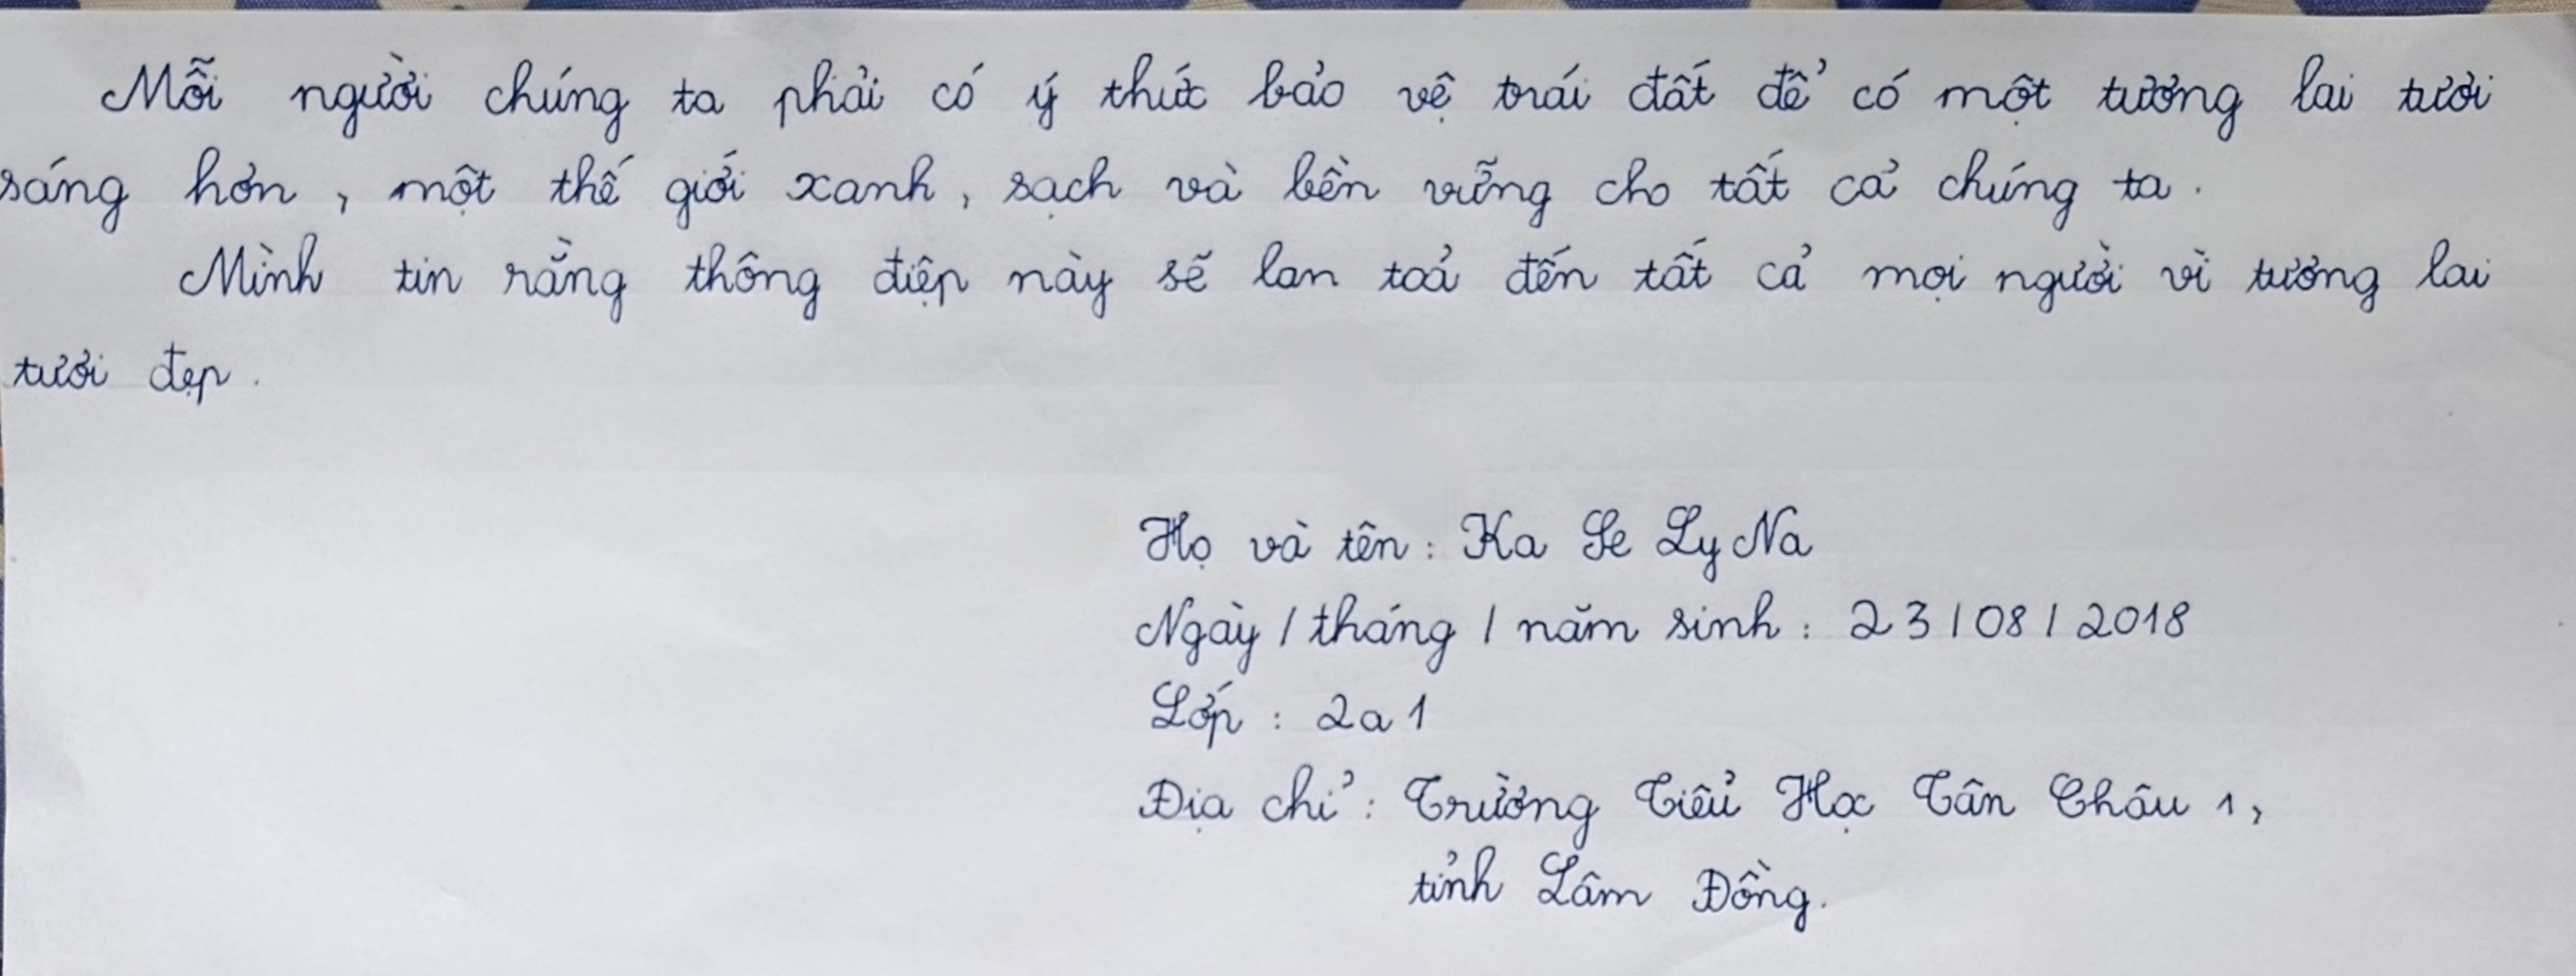 Mỗi người chúng ta phải có ý thức bảo vệ trái đất để có một tương lai tươi
sáng hơn, một thế giới xanh, sạch và bền vững cho tất cả chúng ta.
Mình tin rằng thông điệp này sẽ lan toả đến tất cả mọi người vì tương lai
tươi đẹp.
Họ và tên: Ka Se Ly Na
Ngày / tháng / năm sinh: 23 / 08 / 2018
Lớp: 2a1
Địa chỉ: Trường Tiểu Học Tân Châu 1,
tỉnh Lâm Đồng.